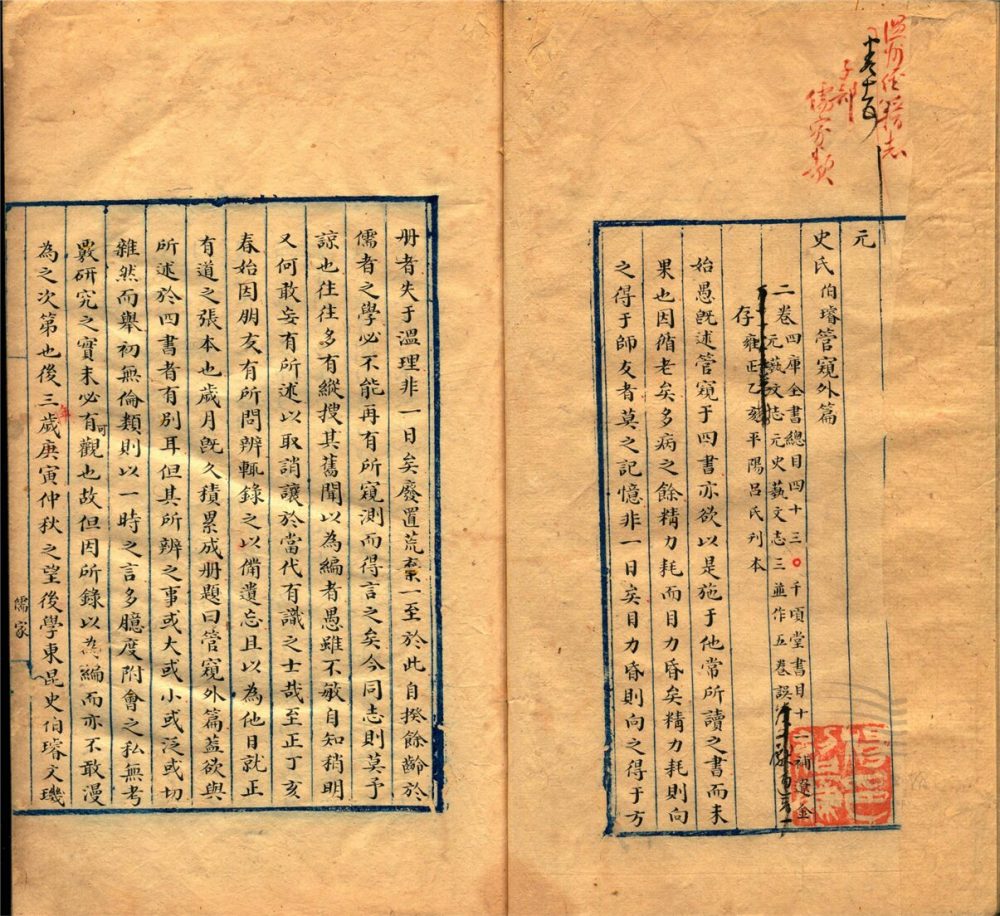 溫州經籍志
子部
儒家類
元
史氏伯璿管窺外篇
二卷 四庫全書總目四十三○千頃堂書目十一補遼金
元藝文志元史藝文志三並作五卷誤
存 雍正乙刻平陽呂氏刊本
始愚既述管窺于四書亦欲以是施于他常所讀之書而未
果也因循老矣多病之餘精力耗而目力昏矣精力耗則向
之得于師友者莫之記憶非一日矣目力昏則向之得于方
册者失于溫理非一日矣廢置荒棄一至於此自揆餘齡於
儒者之學必不能再有所窺測而得言之矣今同志則莫予
諒也往往多有縱搜其舊聞以為編者愚雖不敏自知稍明
又何敢妄有所述以取誚讓於當代有識之士哉至正丁亥
春始因朋友有所問辨輒錄之以備遺忘且以為他日就正
有道之張本也歲月既久積累成册題曰管窺外篇蓋欲與
所述於四書者有別耳但其所辨之事或大或小或泛或切
雜然而舉初無倫類則以一時之言多臆度附會之私無考
覈研究之實未必有可觀也故但因所錄以為編而亦不敢漫
為之次第也後三歲庚寅仲秋之望後學東昆史伯璿文璣
儒家